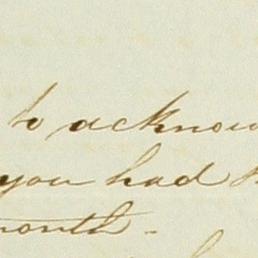 to acknow
you had
month -